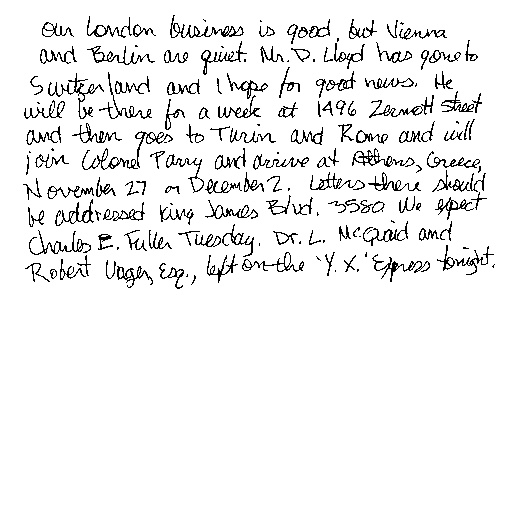 Our London business is good, but Vienna
and Berlin are quiet. Mr. D. Lloyd has gone to
Switzerland and I hope for good news. He
will be there for a week at 1496 Zermott Street
and then goes to Turin and Rome and will
join Colonel Parry and arrive at Athens, Greece,
November 27 or December 2. Letters there should
be addressed King James Blvd. 3580 We expect
Charles E. Fuller Tuesday. Dr. L. McQuaid and
Robert Unger, Esq., left on the 'Y. X.' Express tonight.